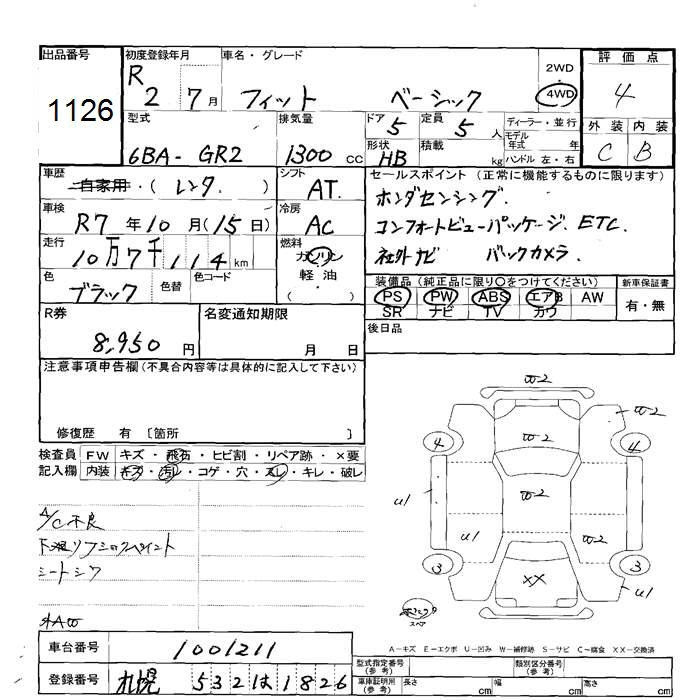 出品番号 1126
初度登録年月 R 2 7月
車名・グレード フィット ベーシック
2WD
4WD
評価点 4
外装 内装
C B
型式 6BA- GR2
排気量 1300 CC
ドア 5
定員 5 人
形状 HB
積載 kg
ディーラー・並行
モデル年式 年
ハンドル 左・右
車歴 自家用・( レンタ )
シフト AT
車検 R7 年 10 月 ( 15 日)
冷房 AC
走行 10万7千114 km
燃料 ガソリン・軽油
( )
色 ブラック 色替 色コード
セールスポイント (正常に機能するものに限ります)
ホンダセンシング.
コンフォートビューパッケージ. ETC.
社外ナビ バックカメラ.
装備品 (純正品に限り○をつけてください)
PS PW ABS エアB AW
SR ナビ TV カワ
新車保証書
有・無
R券 8,950 円
名変通知期限
月 日
後日品
注意事項申告欄(不具合内容等は具体的に記入して下さい)
修復歴 有 〔箇所 〕
検査員記入欄
FW キズ・飛石・ヒビ割・リペア跡・×要
内装 キズ・汚レ・コゲ・穴・スレ・キレ・破レ
A/C不良
シートシワ
W2
W2
W2
W2
W2
4
4
U1
U1
3
3
U1
XX
スペア
A-キズ E-エクボ U-凹み W-補修跡 S-サビ C-腐食 XX-交換済
車台番号 1001211
登録番号 札幌 532 は 1826
型式指定番号(参考)
類別区分番号(参考)
車庫証明用(参考) 長さ cm 幅 cm 高さ cm